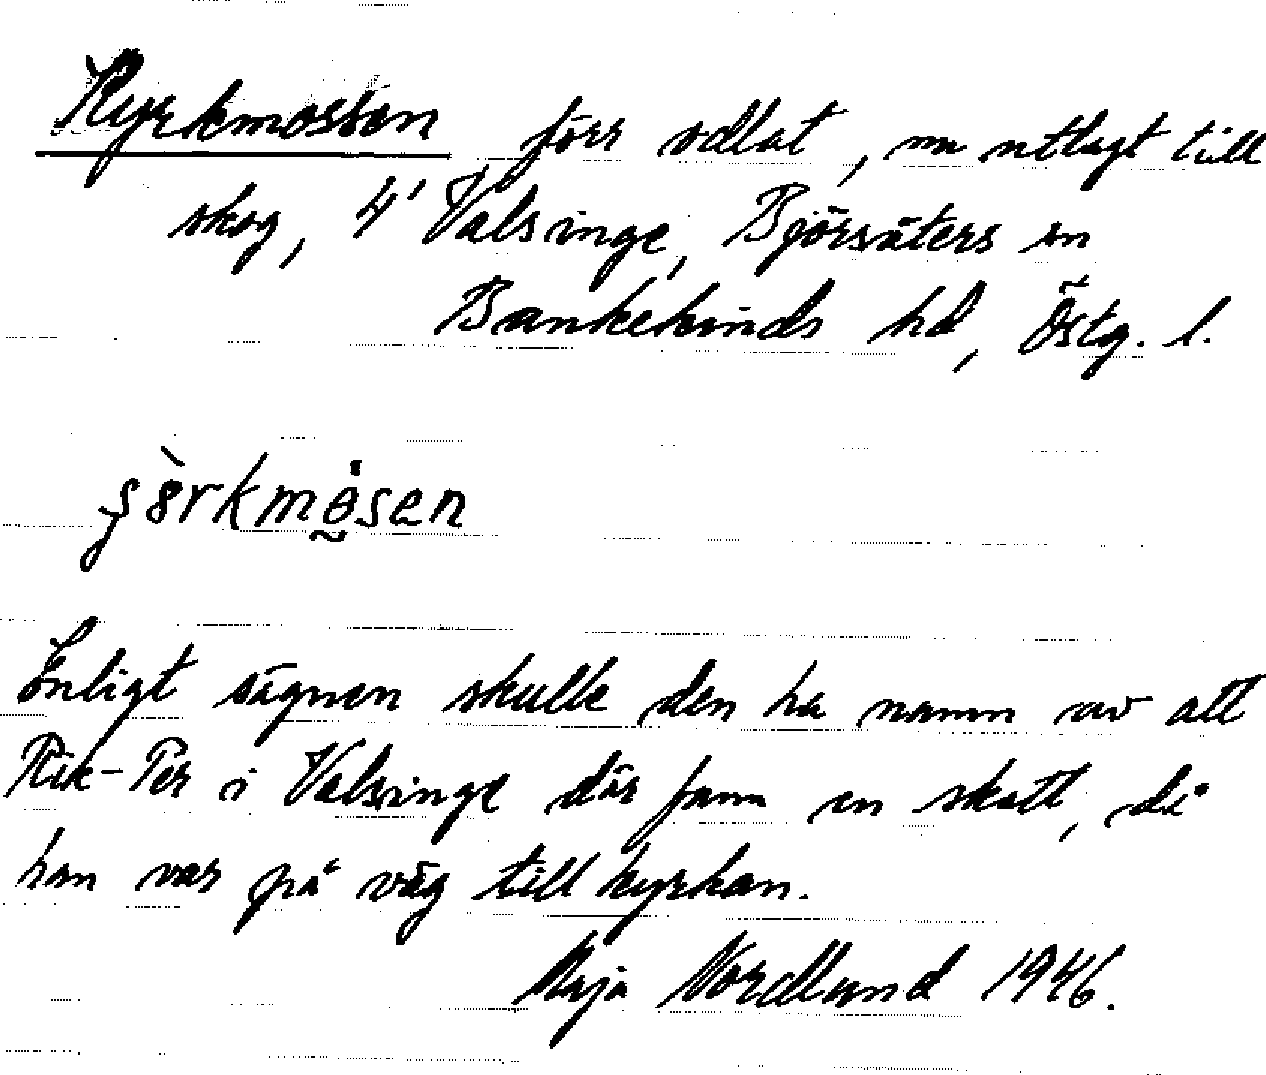 Kyrkmossen förr odlat, nu utlagt till
skog, 4' Valsinge, Björsäters sn
Bankekinds hd, Östg. l.
Enligt sägnen skulle den ha namn av att
Rik-Per i Valsinge där fann en skatt, då
han var på väg till kyrkan.
Maja Nordlund 1946.